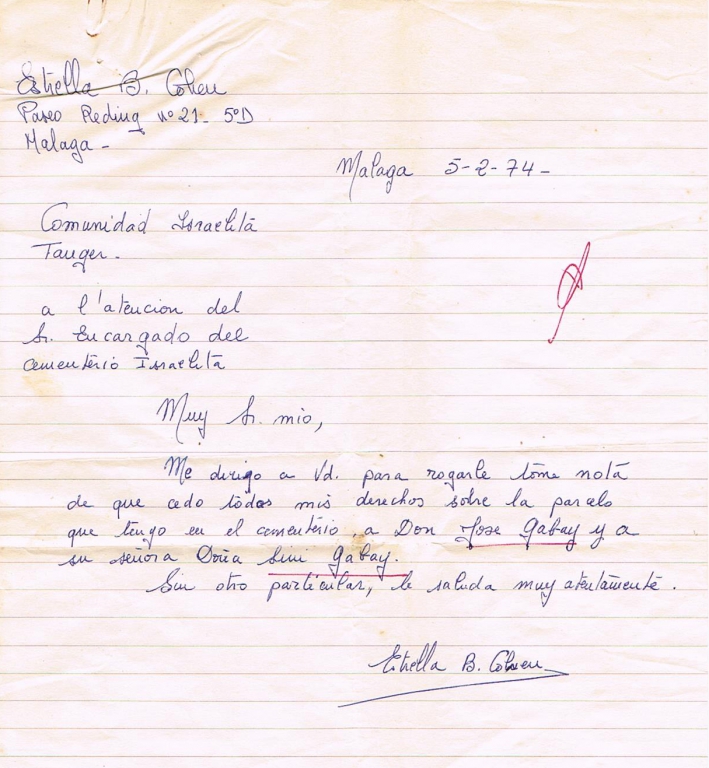 Estrella B. Cohen
Paseo Reding nº 21- 5º D
Malaga -
Malaga 5-2-74-
Comunidad Israelita
Tanger -
a l'atencion del
Sr. Encargado del
cementério Israelita
Muy Sr. mio,
Me dirigo a Vd. para rogarle tome nota
de que cedo todos mis derechos sobre la parcela
que tengo en el cementério, a Don Jose Gabay y a
su señora Doña Simi Gabay.
Sin otro particular, le saluda muy atentamente.
Estrella B. Cohen